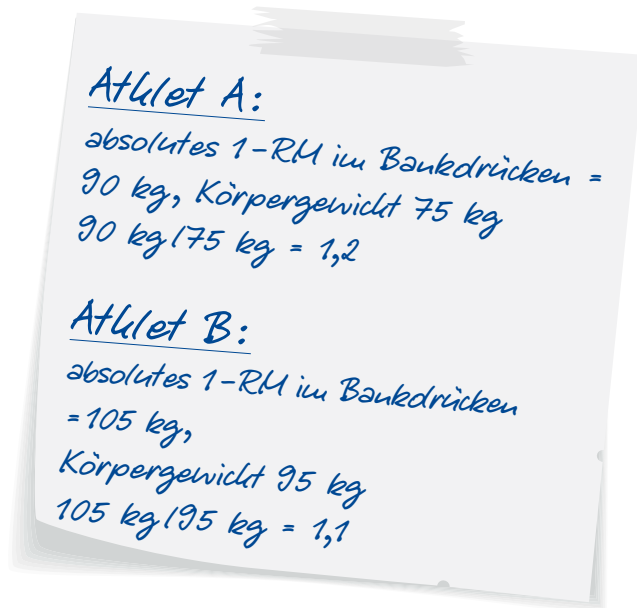 Athlet A:
absolutes 1-RM im Bankdrücken =
90 kg, Körpergewicht 75 kg
90 kg/75 kg = 1,2
Athlet B:
absolutes 1-RM im Bankdrücken
=105 kg,
Körpergewicht 95 kg
105 kg/95 kg = 1,1